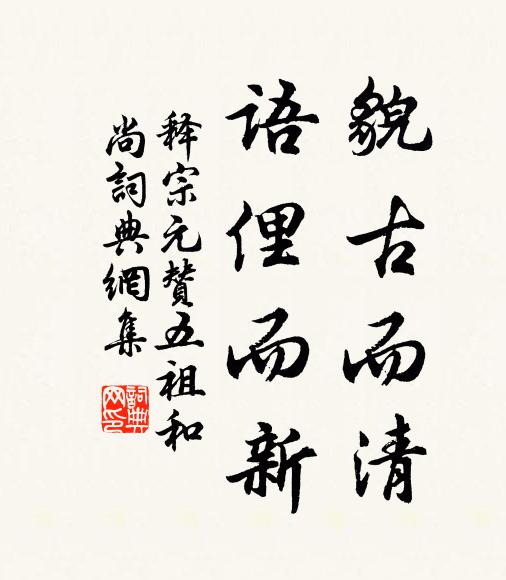 貌古而清
語俚而新
釋宗元贊五祖和
尚詞典網集
詞典
网印